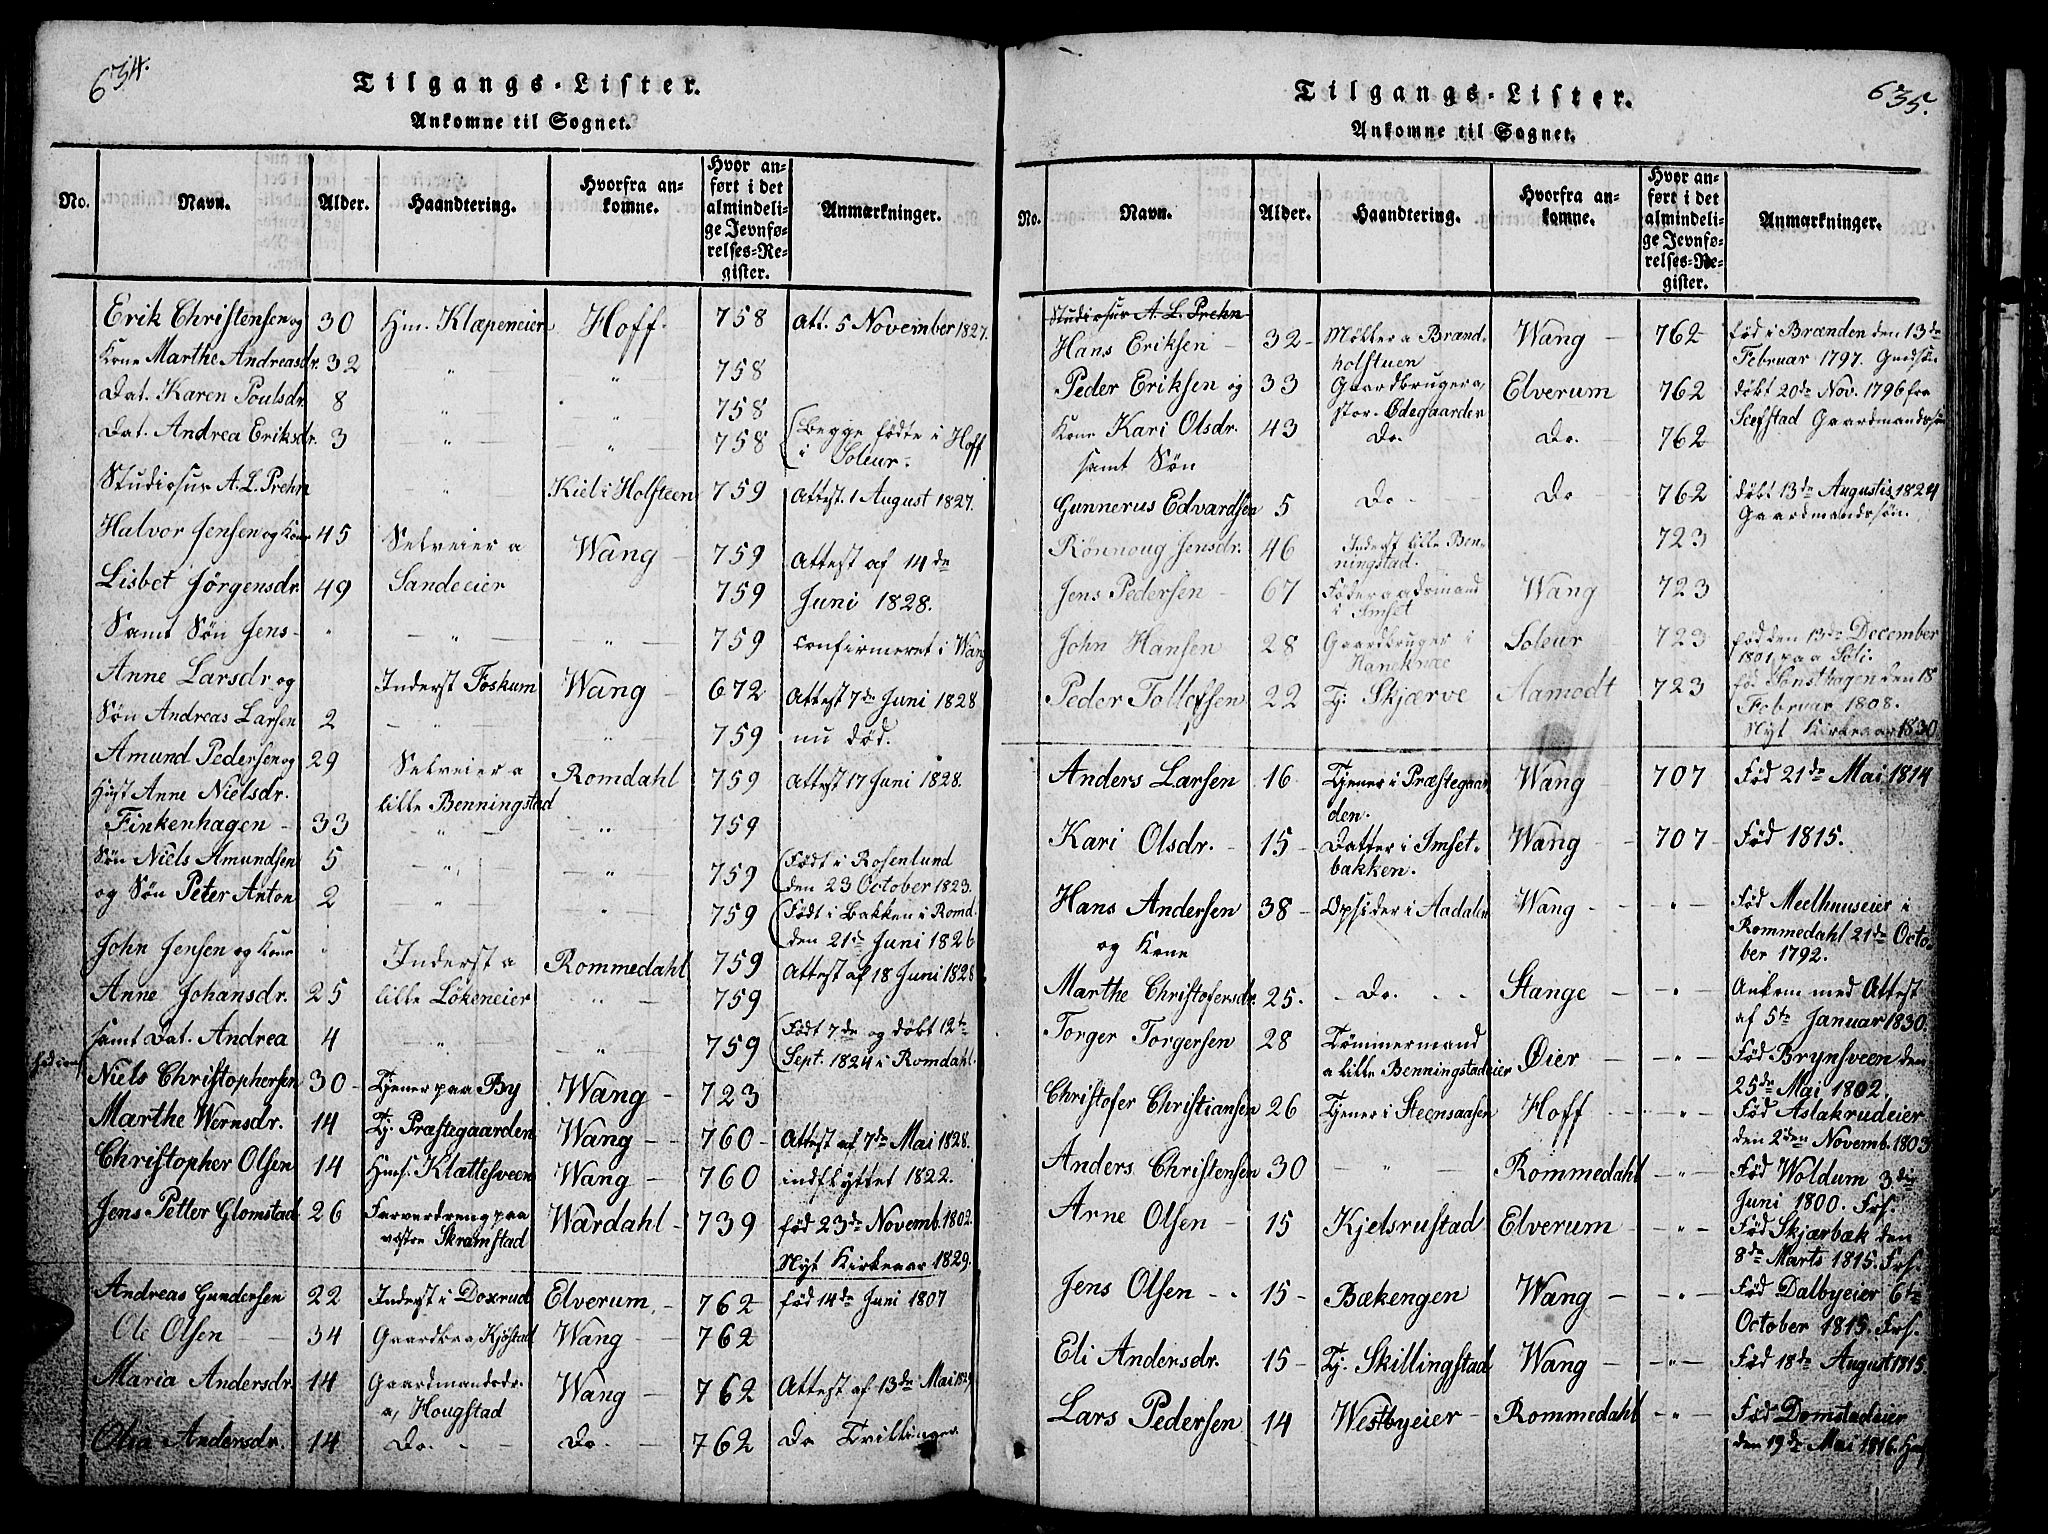 634.
Tilgangs-Lister.
Ankomne til Sognet.
No. Navn. Alder. Haandtering. Hvorfra ankomne. Hvor anført i det almindelige Jevnførelses-Register. Anmærkninger.
Erik Christensen og 30 Hm. Klæpeneier Hoff. 758 Att. 5 November 1827.
Kone Marthe Andreasdr. 32 " " 758
Dat. Karen Poulsdr. 8 " " 758
Dat. Andrea Eriksdr. 3 " " 758 (begge fødte i Hoff
i Soleur.
Studiosus A. L. Prehn " Kiel i Holsteen 759 Attest. 1 August 1827.
Halvor Jensen og Kone 45 Selveier a Wang 759 Attest af 14de
Lisbet Jørgensdr. 49 Sandeeier 759 Juni 1828.
Samt Søn Jens - " " " 759 Confirmeret i Wang
Anne Larsdr. og Inderst Foskum Wang 672 Attest 7de Juni 1828
Søn Andreas Larsen 2 " " 759 nu død.
Amund Pedersen og 29 Selveier a Romdahl 759 Attest 17 Juni 1828.
Hust Anne Nielsdr. lille Benningstad
Finkenhagen - 33 " " 759
Søn Niels Amundsen 5 " " 759 (Født i Rosenlund
den 23 October 1823.
og Søn Peter Anton 2 " " 759 (Født i Bakken i Romd.
den 21de Juni 1826
John Jensen og Kone " Inderst a Rommedahl 759 Attest af 18 Juni 1828
Anne Johansdr. 25 lille Løkeneier " 759
samt Dat. Andrea 4 " " 759 (Født 7de og døbt 12te
Sept. 1824 i Romdahl.
Niels Christophersen 30 - Tjener paa By Wang - 723
Marthe Wernsdr. 14 Tj. Præstegaarden Wang - 760 - Attest af 7de Mai 1828.
Christopher Olsen 14 Hmf. Klattesveen Wang - 760 indflyttet 1822.
Jens Petter Glomstad 26 Farverdreng paa Wardahl - 739 født 23de Novemb. 1802.
vestre Skramstad
Nyt Kirkeaar 1829.
Andreas Gundersen 22 Inderst i Doxrud Elverum, - 762 født 14de Juni 1807
Ole Olsen 34 Gaardbr. a Kjøstad Wang - 762
Maria Andersdr. 14 Gaardmandsdr. Wang - 762 Attest af 13de Mai
a, Hougstad
Olia Andersdr. 14 Do. - - Do. - 762 Do Tvillinger
635.
Tilgangs-Lister.
Ankomne til Sognet.
No. Navn. Alder. Haandtering. Hvorfra ankomne. Hvor anført i det almindelige Jevnførelses-Register. Anmærkninger.
Studiosus A. L. Prehn
Hans Eriksen - 32 - Møller a Brand- Wang - 762 født i Brænden den 13de
holstuen Februar 1797.
Peder Eriksen og 33 Gaardbruger a, Elverum 762 døbt 20de Nov. 1796 fra
stor-Ødegaarden
Kone Kari Olsdr. 43 Do. Do. - 762 Gaardmandssøn
samt Søn
Gunnerus Edvardsen 5 Do - - Do - 762 døbt 13de Augusti 1824
Gaardmandssøn.
Rønnoug Jensdr. 46 Inderst lille Ben- 723
ningstad.
Jens Pedersen - 67 Føderaadsmand Wang 723
i Imset
John Hansen 28 Gaardbruger i Soleur - 723 født den 13de December
1801 paa Soli.
Peder Tollefsen 22 Tj. Skjærve Aamodt 723 fød den 18
Februar 1808.
Nyt Kirkeaar 1830
Anders Larsen 16 Tjener i Præstegaar Wang - 707 Fød 21de Mai 1814
den.
Kari Olsdr. - 15 - Datter i Imset- Wang - 707 - Fød 1815.
bakken.
Hans Andersen 38 - Opsider i Aadalen Wang - - " - Fød Meelhuuseier i
og Kone Rommedahl 21de Octo-
ber 1792.
Marthe Christofersdr. 25. - Do. - - Stange - " - Ankom med Attest
af 5te Januar 1830.
Torger Torgersen 28 Tømmermand Øier - " - Fød Brynsveen den
a lille Benningstadeier 25de Mai 1802.
Christofer Christiansen 26 Tjener i Steensaasen Hoff - - " - Fød Aslakrudeier
den 2den Novemb. 1803
Anders Christensen 30 - " - Rommedahl - " - Fød Woldum 3die
Juni 1800. Frs.
Arne Olsen - 15 Kjelsrustad Elverum - - " - Fød Skjærbæk den
8de Marts 1815. Frs.
Jens Olsen - - 15 - Bækengen Wang - - " - Fød Dalbyeier 6te
October 1815. Frs.
Eli Andersdr. 15 - Tj. Skillingstad Wang - - " - Fød 18de August 1815.
Lars Pedersen 14 Westbyeier - Rommedahl - " - Fød Domstadeier
den 19de Mai 1816.